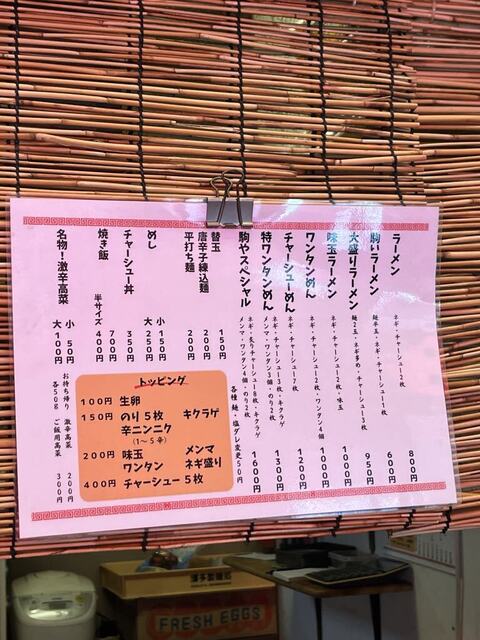 ラーメン ネギ・チャーシュー2枚 800円
駒いラーメン 麺半玉・ネギ・チャーシュー1枚 600円
大盛りラーメン 麺2玉・ネギ多め・チャーシュー3枚 950円
味玉ラーメン ネギ・チャーシュー2枚・味玉 1000円
ワンタンめん ネギ・チャーシュー2枚・ワンタン4個 1000円
チャーシューめん ネギ・チャーシュー7枚 1200円
特ワンタンめん ネギ・チャーシュー3枚・キクラゲ メンマ・ワンタン3個・のり2枚 1300円
駒やスペシャル ネギ・炙りチャーシュー8枚・キクラゲ メンマ・ワンタン4個・のり2枚 1600円
各種 麺・塩ダレ変更50円
替玉 150円
唐辛子練込麺 200円
平打ち麺 200円
めし 小 150円 大 250円
チャーシュー丼 350円
焼き飯 700円
半サイズ 400円
名物!激辛高菜 小 50円 大 100円
お持ち帰り 激辛高菜 200円
各50g ご飯用高菜 300円
トッピング
100円 生卵
150円 のり5枚 キクラゲ
辛ニンニク
(1~5辛)
200円 味玉 メンマ
ワンタン ネギ盛り
400円 チャーシュー5枚
博多製麺処
FRESH EGGS